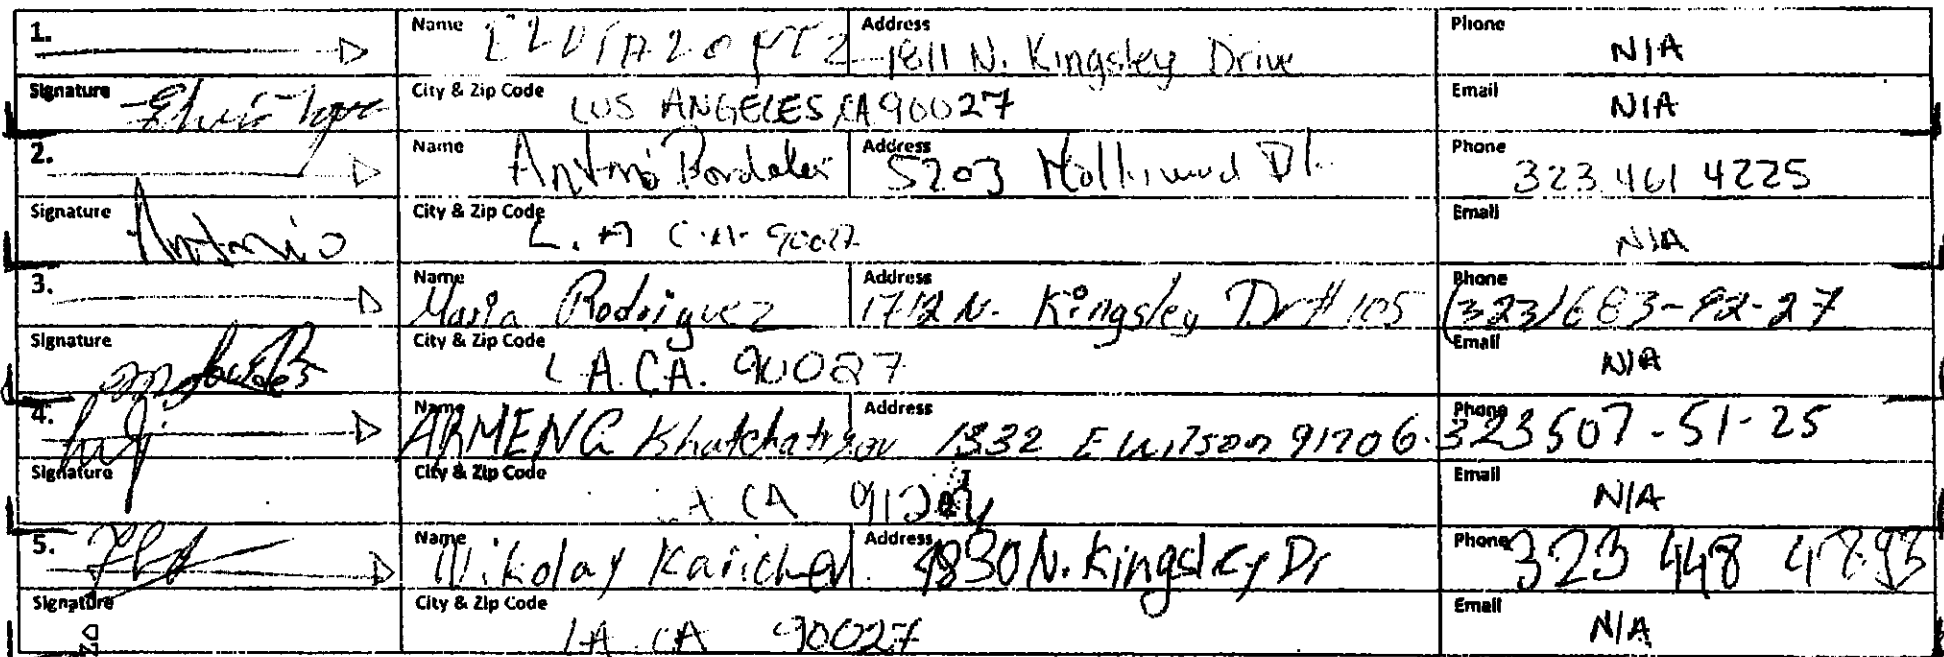 1. Name ELVIA LOPEZ Address 1811 N. Kingsley Drive Phone N/A
Signature City & Zip Code LOS ANGELES, CA 90027 Email N/A
2. Name Antonio Address 5203 Phone 323 461 4225
Signature Antonio City & Zip Code L.A CA. 90027 Email N/A
3. Name Maria Rodriguez Address 1712 N. Kingsley Dr # 105 Phone (323) 683-92-27
Signature City & Zip Code L A. CA. 90027 Email N/A
4. Name ARMENG Khatchatryan Address 1332 E Wilson 91206. Phone 323 507-51-25
Signature City & Zip Code LA CA Email N/A
5. Name Nikolay Address 1830 N. Kingsley Dr Phone 323 448
Signature City & Zip Code LA. CA 90027 Email N/A